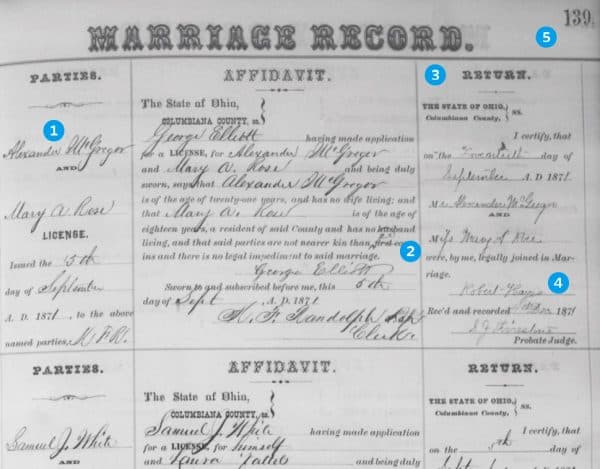 139.
5
MARRIAGE RECORD.
PARTIES.
1
Alexander McGregor
AND
Mary A Rose
LICENSE.
Issued the 5th
day of September
A. D. 1871, to the above
named parties, M F R.
AFFIDAVIT.
The State of Ohio,
COLUMBIANA COUNTY, ss.
George Elliott having made application
for a LICENSE, for Alexander McGregor
and Mary A. Rose and being duly
sworn, says that Alexander McGregor
is of the age of twenty-one years, and has no wife living; and
that Mary A. Rose is of the age of
eighteen years, a resident of said County and has no husband
living, and that said parties are not nearer kin than first cous-
ins and there is no legal impediment to said marriage.
2
George Elliott
Sworn to and subscribed before me, this 5th
day of Sept A. D. 1871
M. F. Randolph Dep
Clerk.
3
RETURN.
THE STATE OF OHIO,
Columbiana County, ss.
I certify, that
on the day of
September A. D. 1871
Mr Alexander McGregor
AND
Miss Mary A. Rose
were, by me, legally joined in Mar-
riage.
4
Robert Hays
Rec'd and recorded 1871
Firestone
Probate Judge.
PARTIES.
Samuel J. White
AND
AFFIDAVIT.
The State of Ohio,
COLUMBIANA COUNTY, ss.
Samuel J. White having made application
for a LICENSE, for himself
and Laura and being duly
RETURN.
THE STATE OF OHIO,
Columbiana County, ss.
I certify, that
on the 5th day of
A. D. 1871